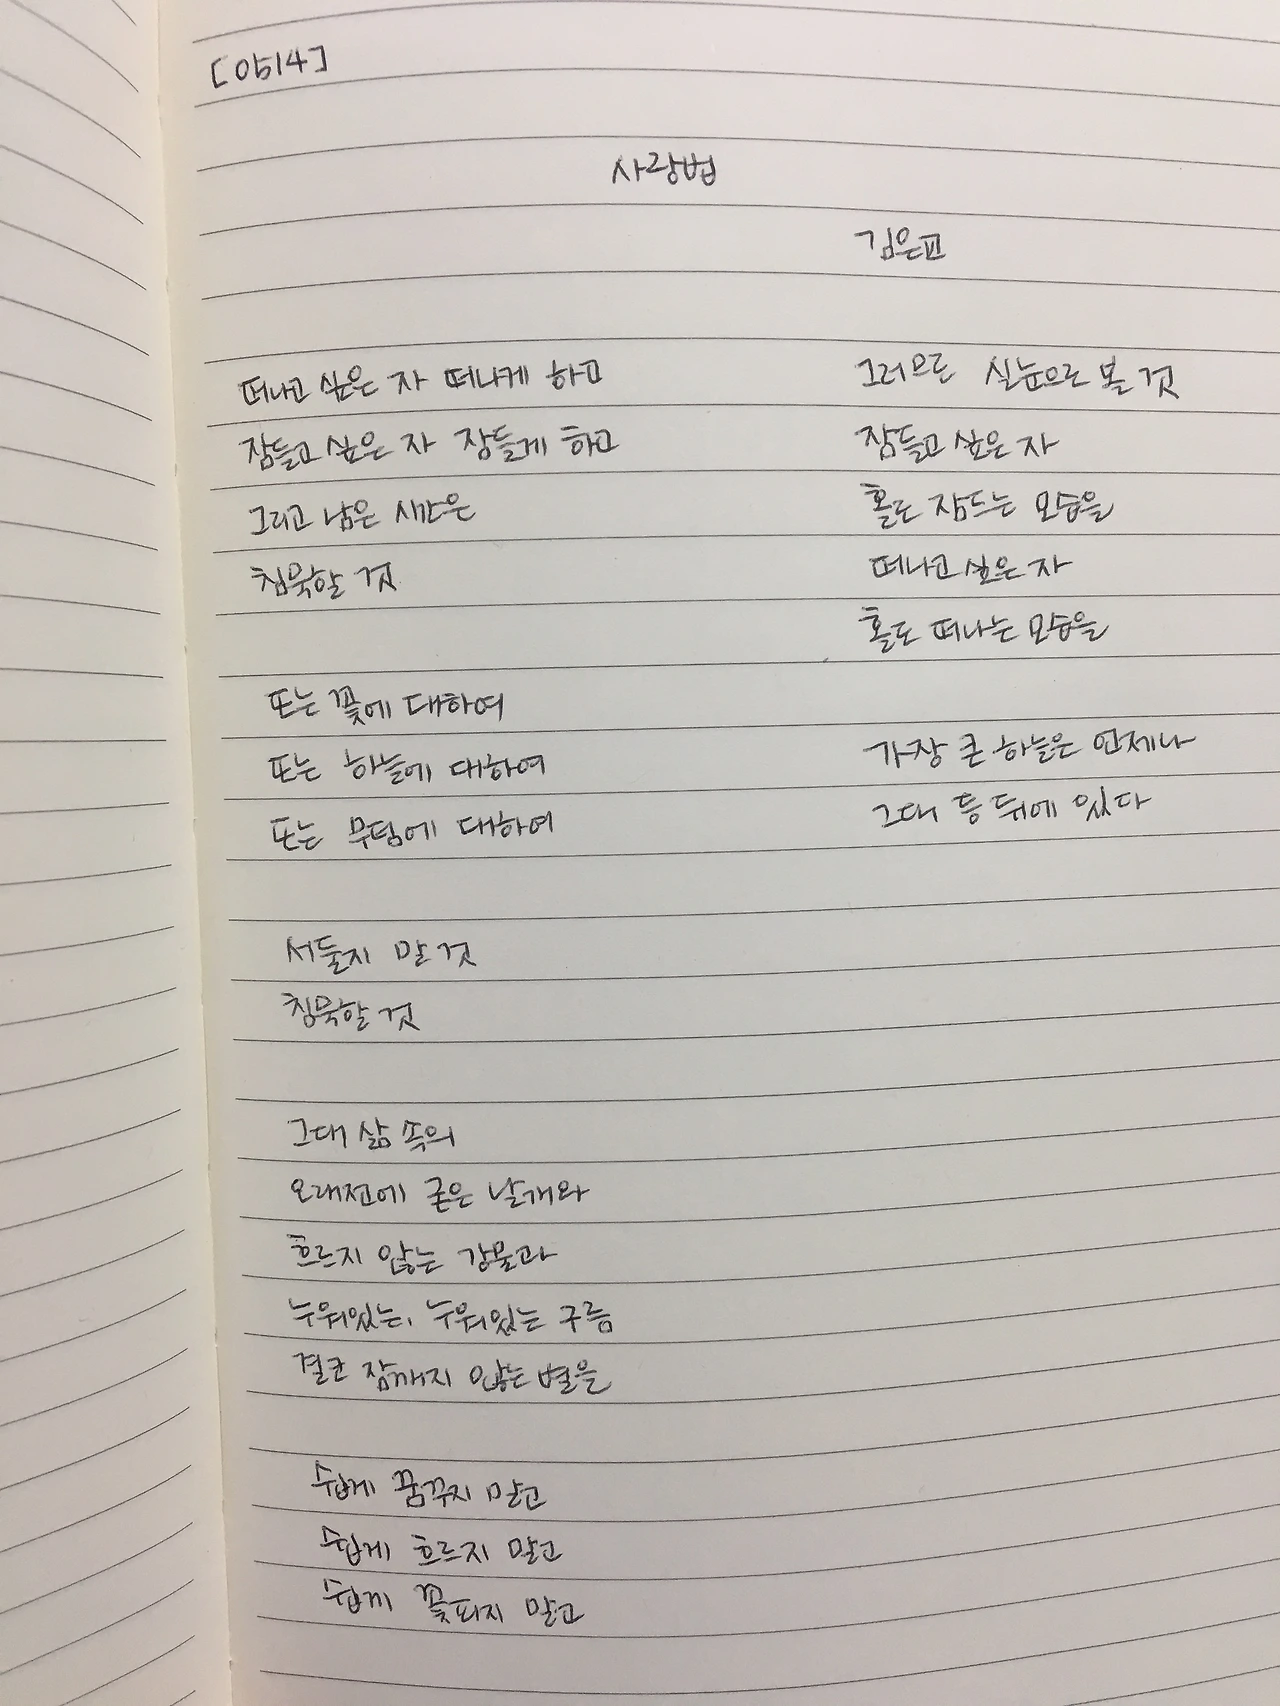 [0514]
사랑법
김은교
떠나고 싶은 자 떠나게 하고
잠들고 싶은 자 잠들게 하고
그리고 남은 시간은
침묵할 것
또는 꽃에 대하여
또는 하늘에 대하여
또는 무덤에 대하여
서둘지 말 것
침묵할 것
그대 삶 속의
오래전에 굳은 날개와
흐르지 않는 강물과
누워있는, 누워있는 구름
결코 잠깨지 않는 별을
쉽게 꿈꾸지 말고
쉽게 흐르지 말고
쉽게 꽃피지 말고
그러므로 실눈으로 볼 것
잠들고 싶은 자
홀로 잠드는 모습을
떠나고 싶은 자
홀로 떠나는 모습을
가장 큰 하늘은 언제나
그대 등 뒤에 있다